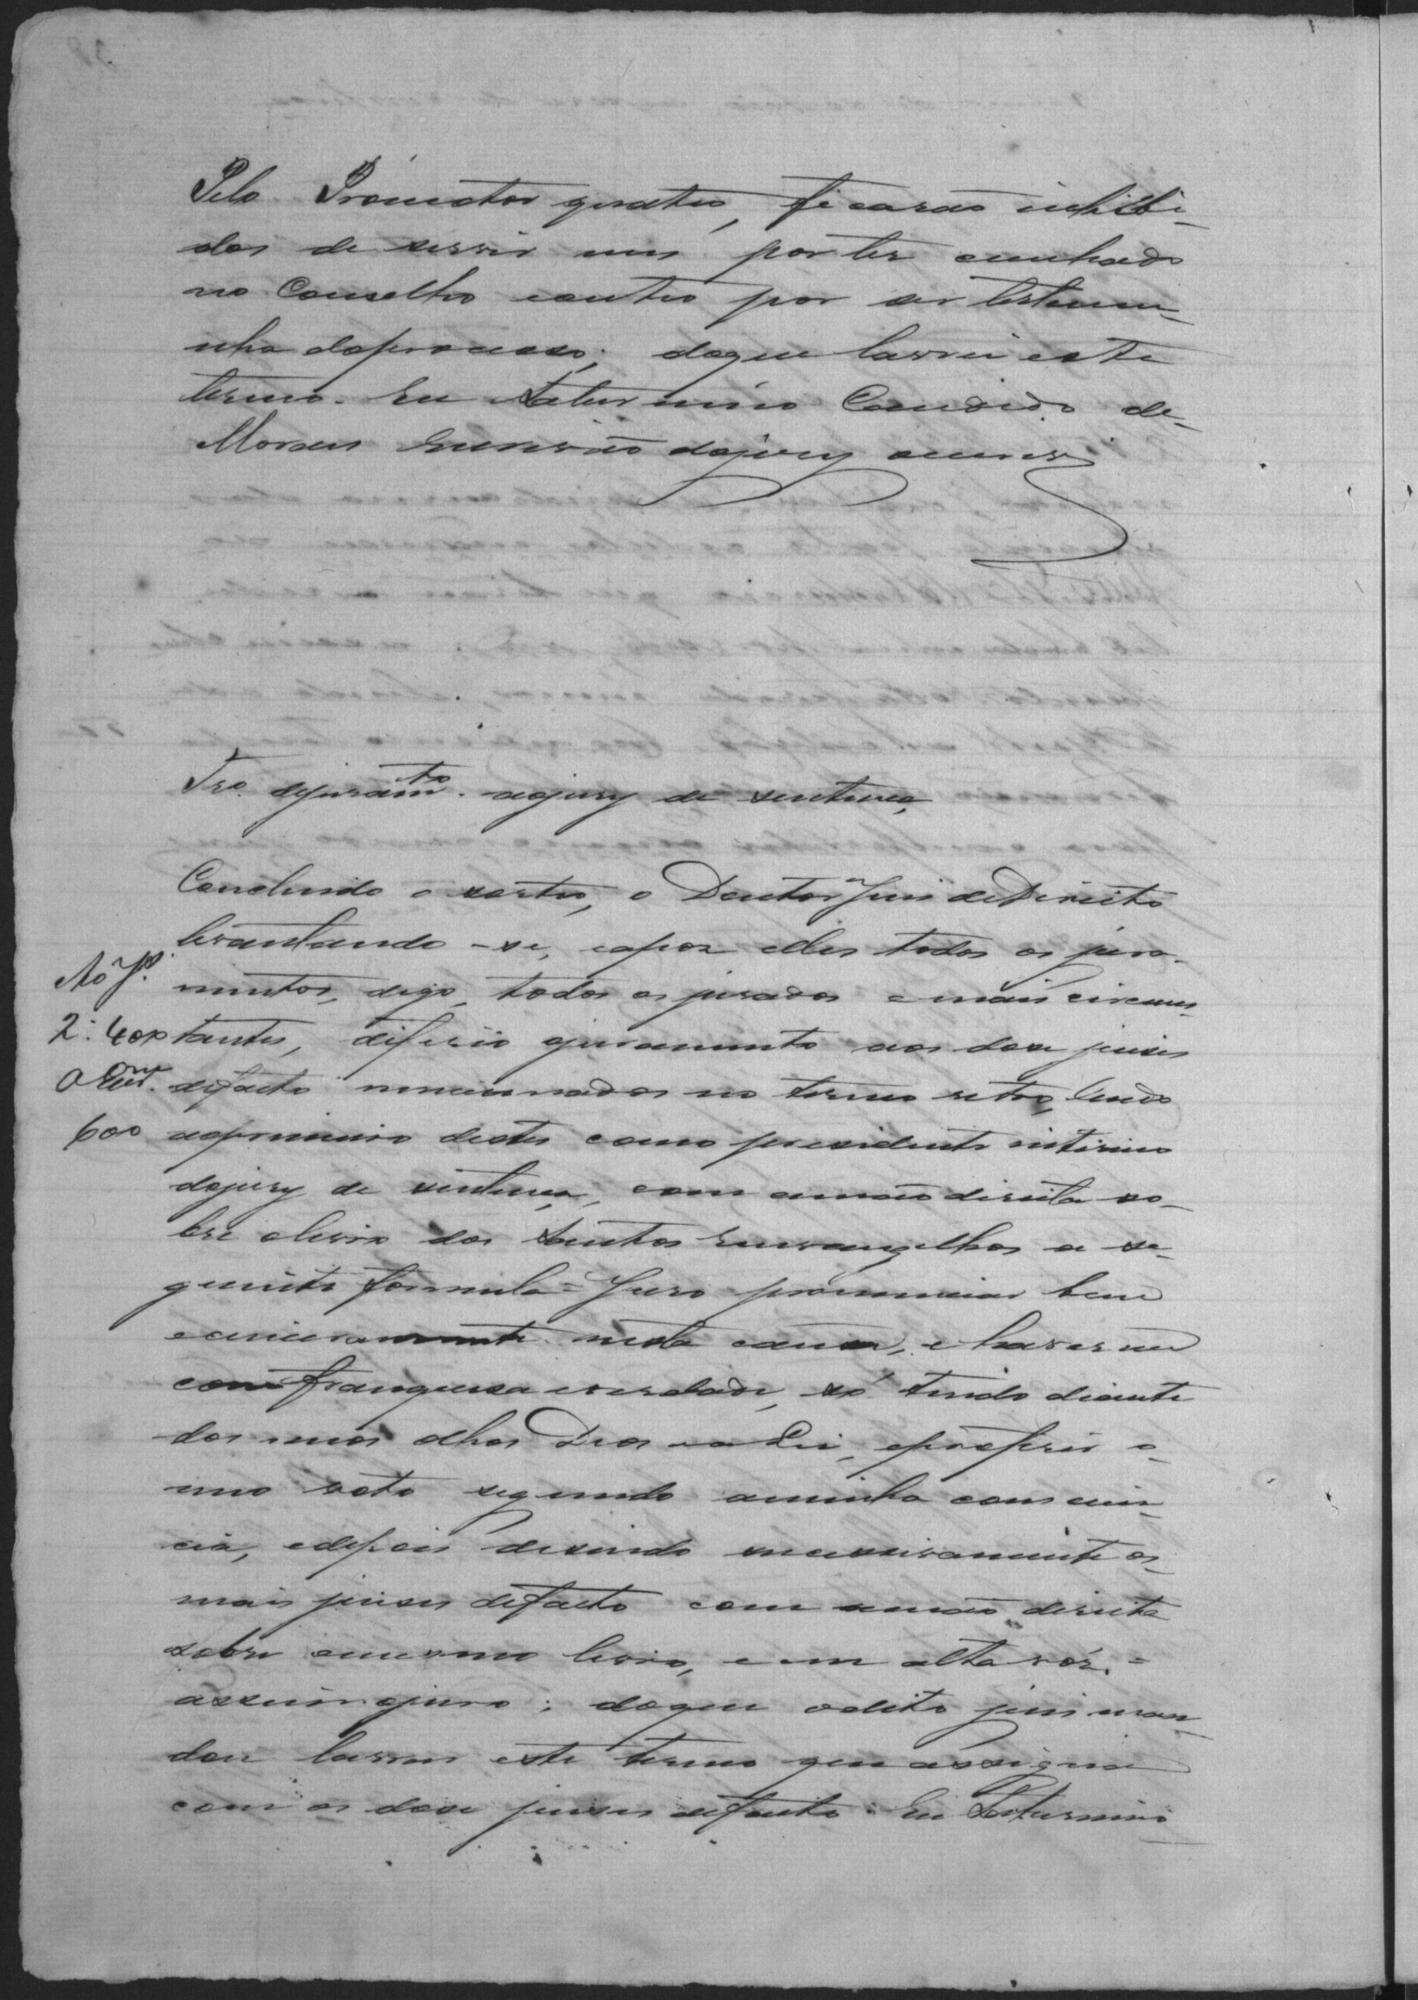 Pelo Promotor quatro, ficarão inhibi-
dos de servir um por ter cunhado
no Conselho eoutro por ser testemu-
nha doprocesso; doque lavrei este
termo. Eu Saturnino Candido de
Moraes Escrivão dojury oescrevi
Tro. dejuramto. aojury de sentença,
Concluido o sorteio, o Doutor Juiz deDireito
levantando-se, eapoz elles todos os jura-
mentos, digo, todos os jurados emais circuns-
tantes, diferio ojuramento aos doze juizes
defacto mencionados no termo retro, lendo
aoprimeiro destes como presidente interino
dojury de sentença, com amão direita so-
bre olivro dos Santos Evangelhos a se-
guinte formula = Juro pronunciar bem
esinceramente nesta causa, e haver me
com franquesa everdade, só tendo diante
dos meus olhos Deos ea Lei, eproferir o
meo voto segundo aminha conscien-
cia, edepois dizendo sucessivamente os
mais juizes defacto com amão direita
sobre omesmo livro, e em alta voz. =
assim ojuro; doque odito juiz man-
dou lavrar este termo que assigna
com os doze juizes defacto. Eu Saturnino
Ao J.
2:400
O Escr.
600